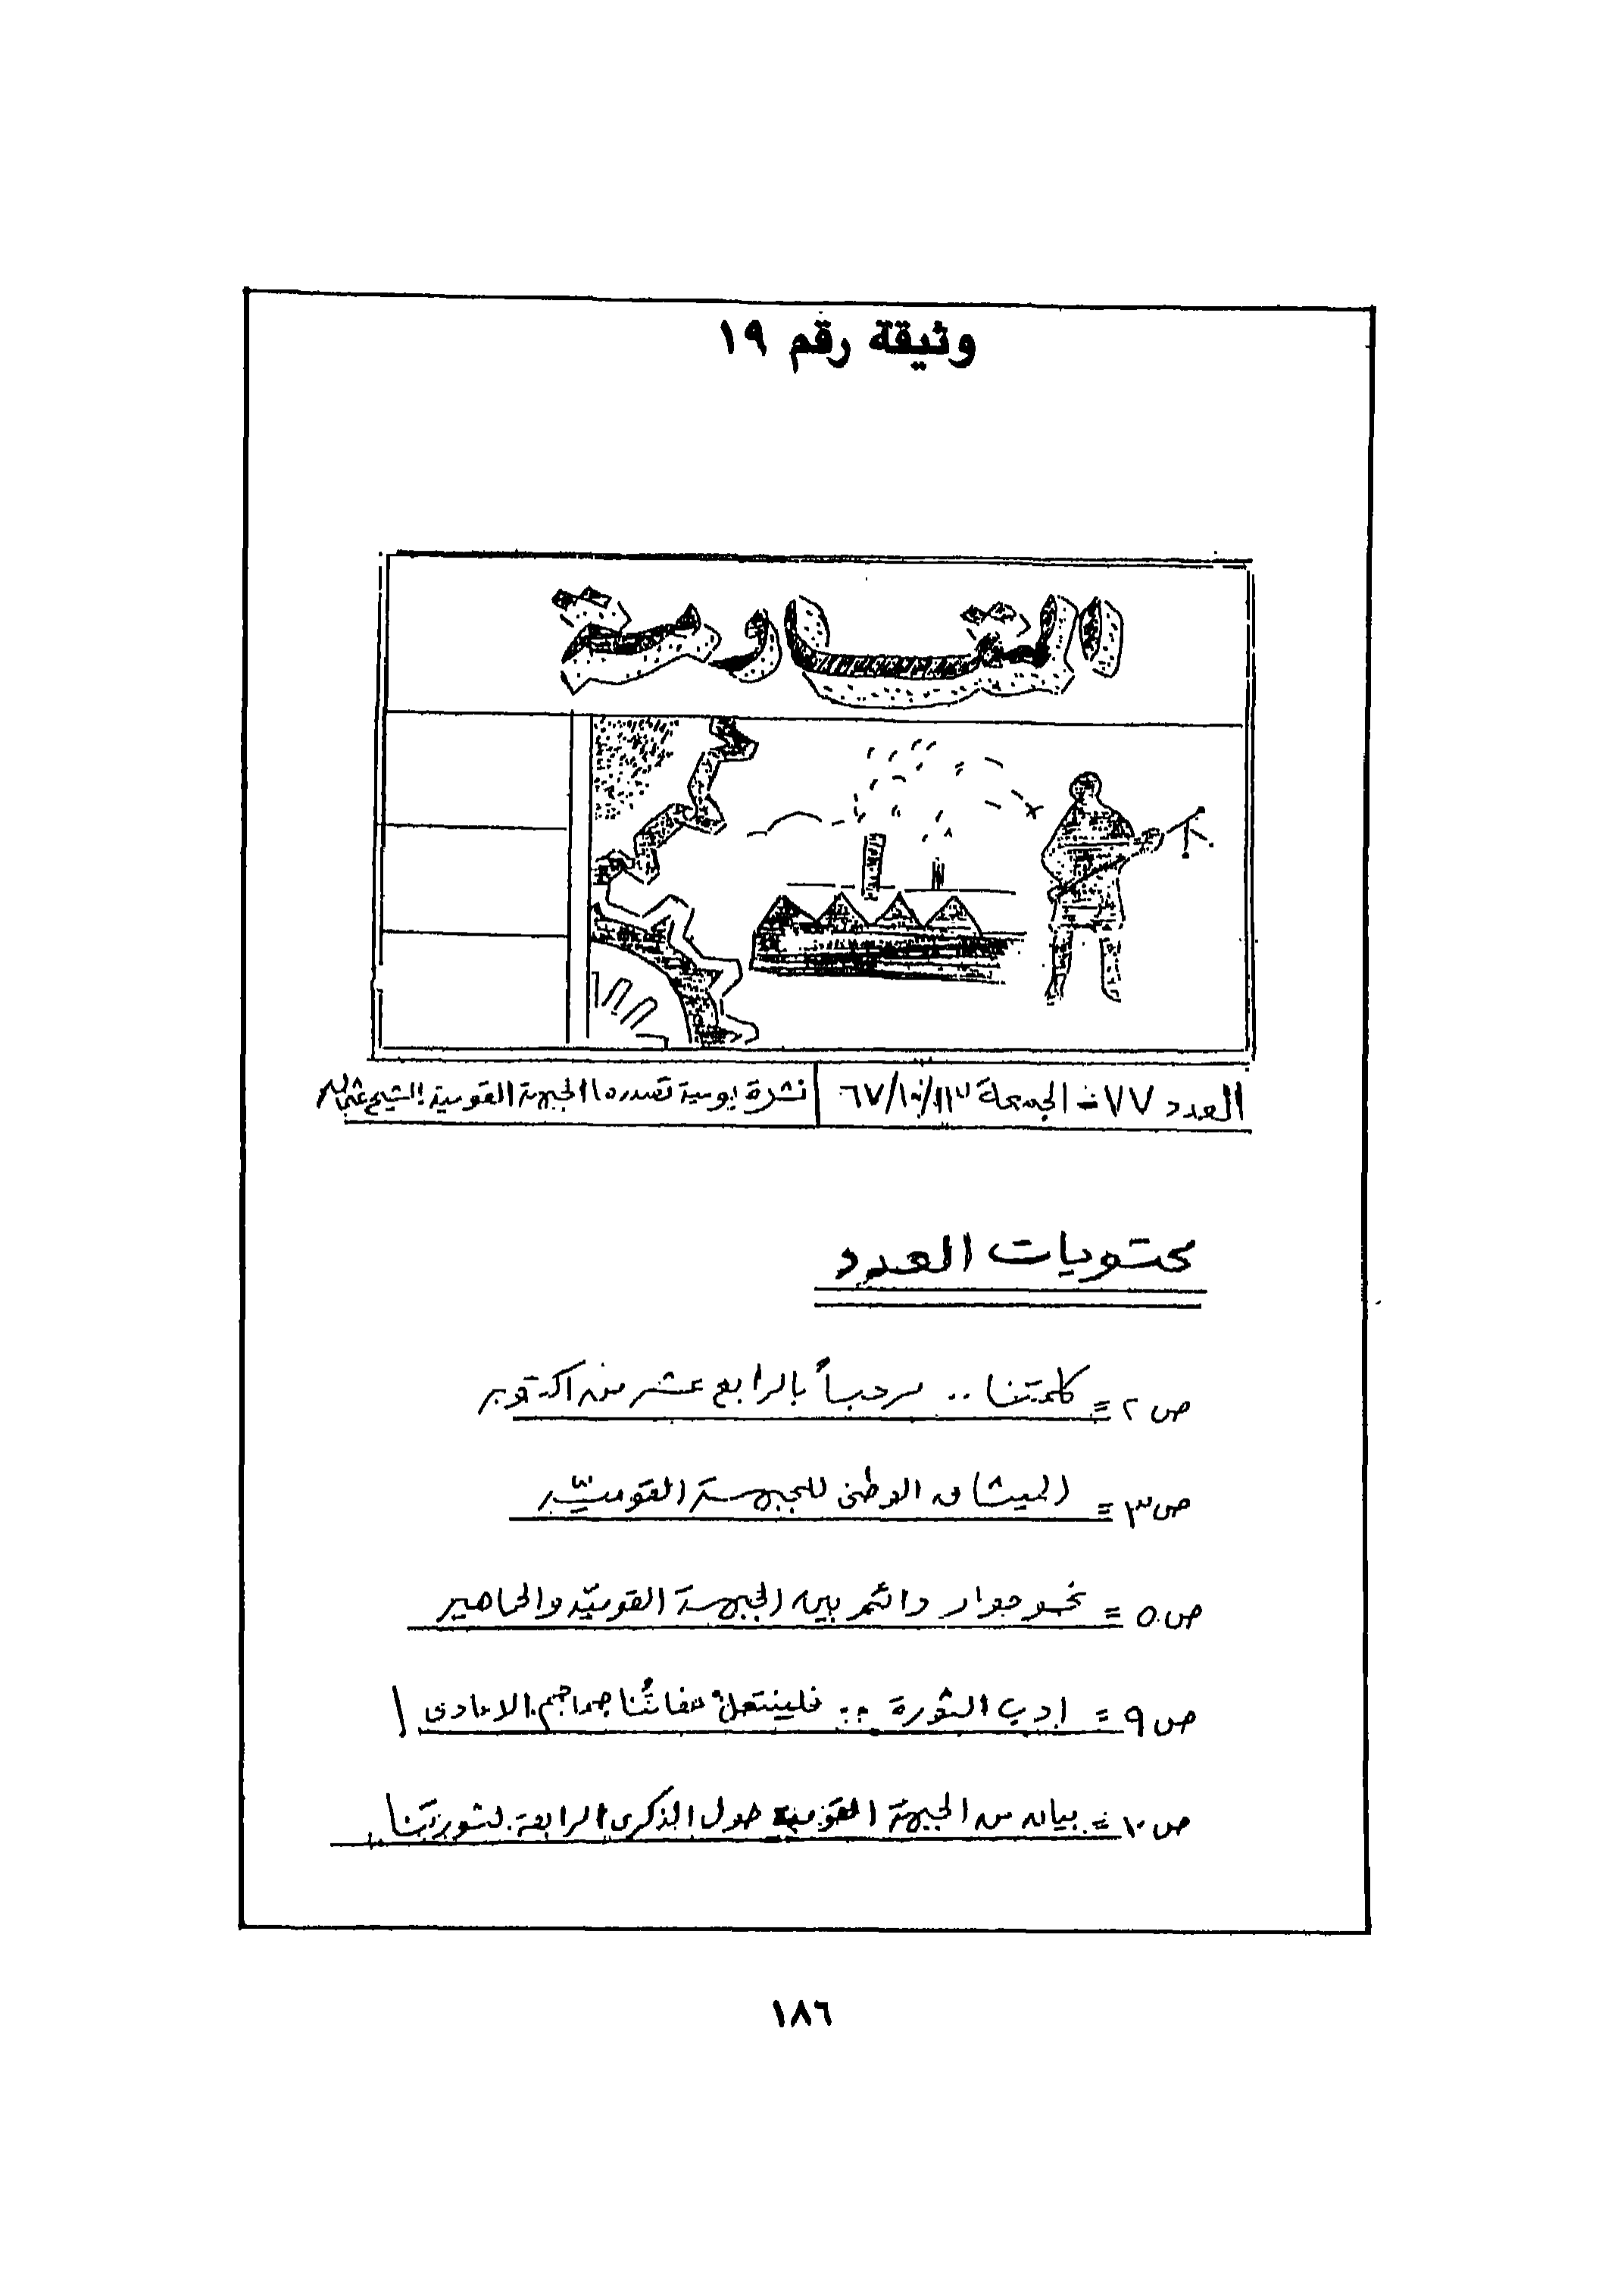 وثيقة رقم ١٩
الثورة
العدد ٧٧ - الجمعة ١٣/١٠/٦٧
نشرة يومية تصدرها الجبهة القومية الشيخ عثمان
محتويات العدد
ص ٢ = كلمتنا .. مرحباً بالرابع عشر من اكتوبر
ص ٣ = الميثاق الوطني للجبهة القوميّة
ص ٥ = نحو حوار دائم بين الجبهة القوميّة والجماهير
ص ٩ = ادب الثورة .. فلينتعل حفاتُنا جماجم الاعادي !
ص ١٠ = بيان من الجبهة القومية حول الذكرى الرابعة لثورتنا
١٨٦